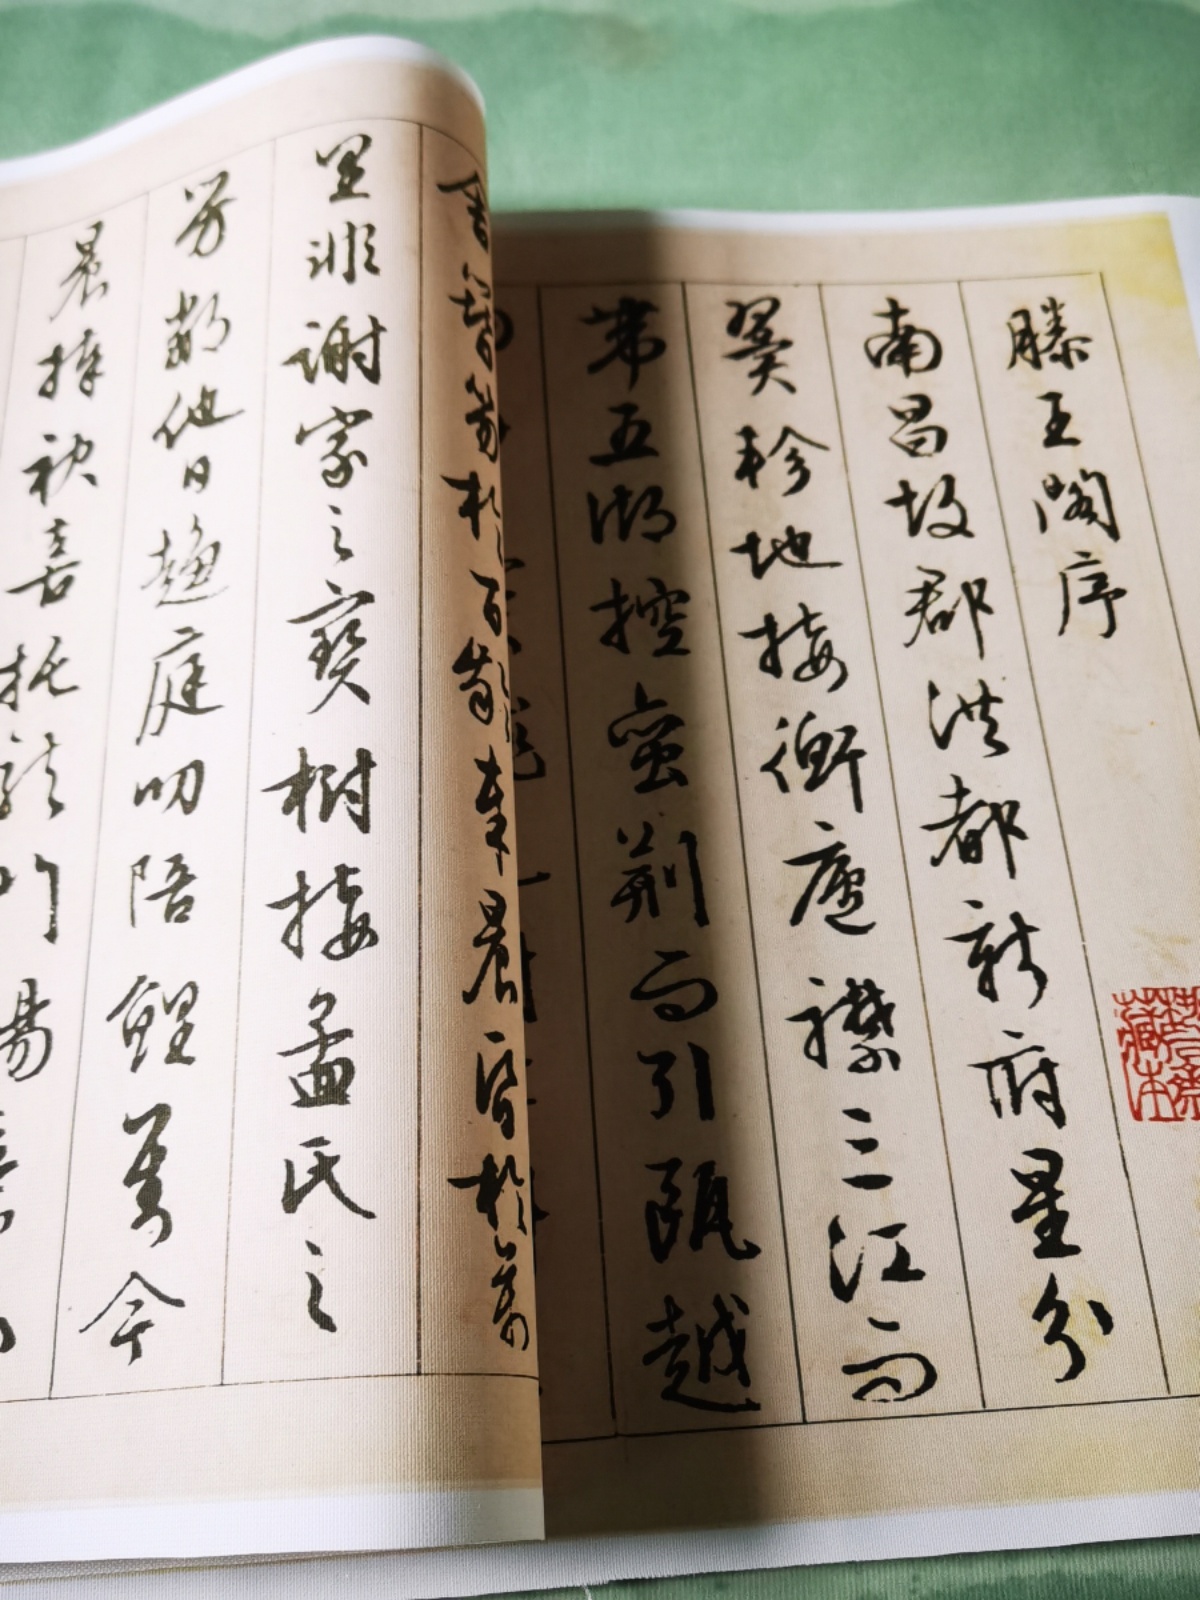 滕王閣序
南昌故郡洪都新府星分
翼軫地接衡廬襟三江而
帶五湖控蠻荊而引甌越
舍簪笏於百齡奉晨昏於萬
里非謝家之寶樹接孟氏之
芳鄰他日趨庭叨陪鯉對今
晨捧袂喜托龍門楊意
藏本